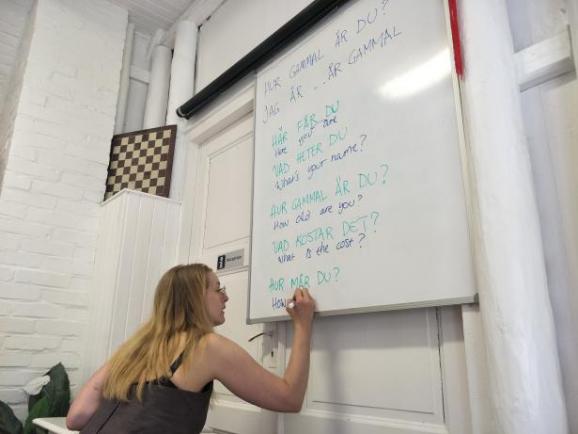 HUR GAMMAL ÄR DU?
JAG ÄR ... ÅR GAMMAL
HÄR FÅR DU
Here you are
VAD HETER DU
What's your name?
HUR GAMMAL ÄR DU?
How old are you?
VAD KOSTAR DET?
What is the cost?
HUR MÅR DU?
How